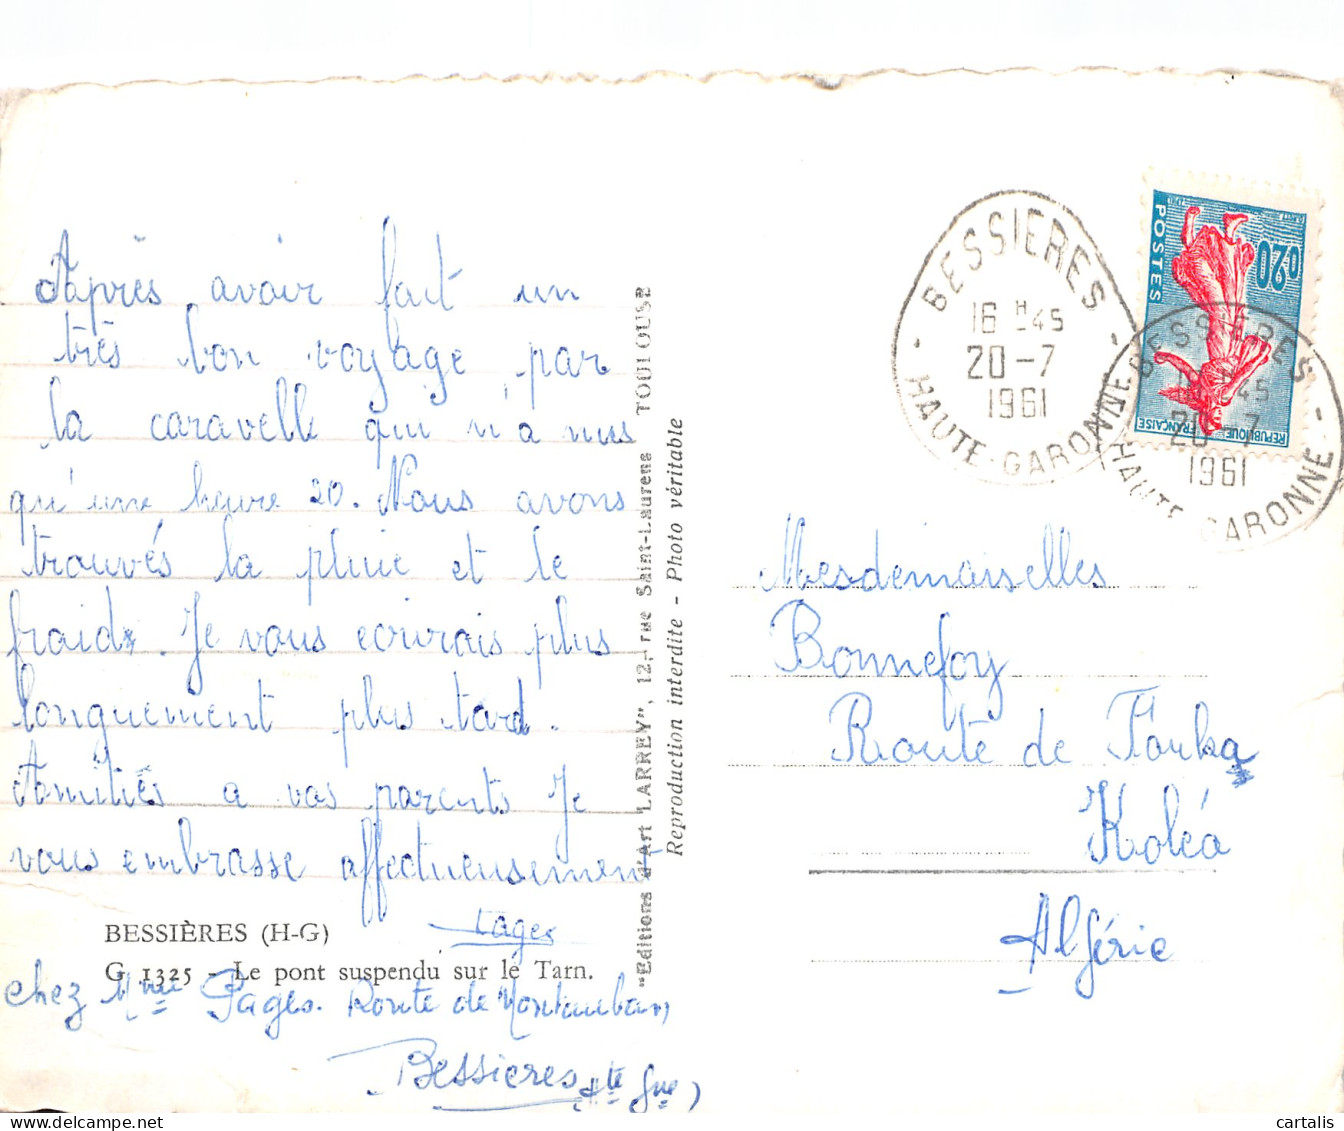 Après avoir fait un
très bon voyage par
la caravelle qui n'a mis
qu'une heure 20. Nous avons
trouvés la pluie et le
froid. Je vous ecrirais plus
longuement plus tard.
Amitiés a vos parents Je
vous embrasse affectueusement
Pages
BESSIÈRES (H-G)
G 1325 - Le pont suspendu sur le Tarn.
chez Mme Pages. Route de Montauban
Bessieres
(Hte Gne)
"Editions d'Art LARREY", 12, rue Saint-Laurens TOULOUSE
Reproduction interdite - Photo véritable
BESSIERES
16 H 45
20 - 7
1961
HAUTE-GARONNE
POSTES
0,20
REPUBLIQUE
FRANÇAISE
BESSIERES
45
20 - 7
1961
HAUTE GARONNE
Mesdemoiselles
Bonnefoy
Route de Fouka
Koléa
Algérie
cartalis